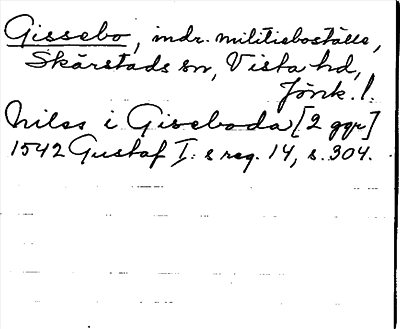 Gissebo, indr. militieboställe,
Skärstads sn, Vista hd,
Jönk. l.
Nilss i Giseboda [2 ggr]
1542 Gustaf I:s reg. 14, s. 304.